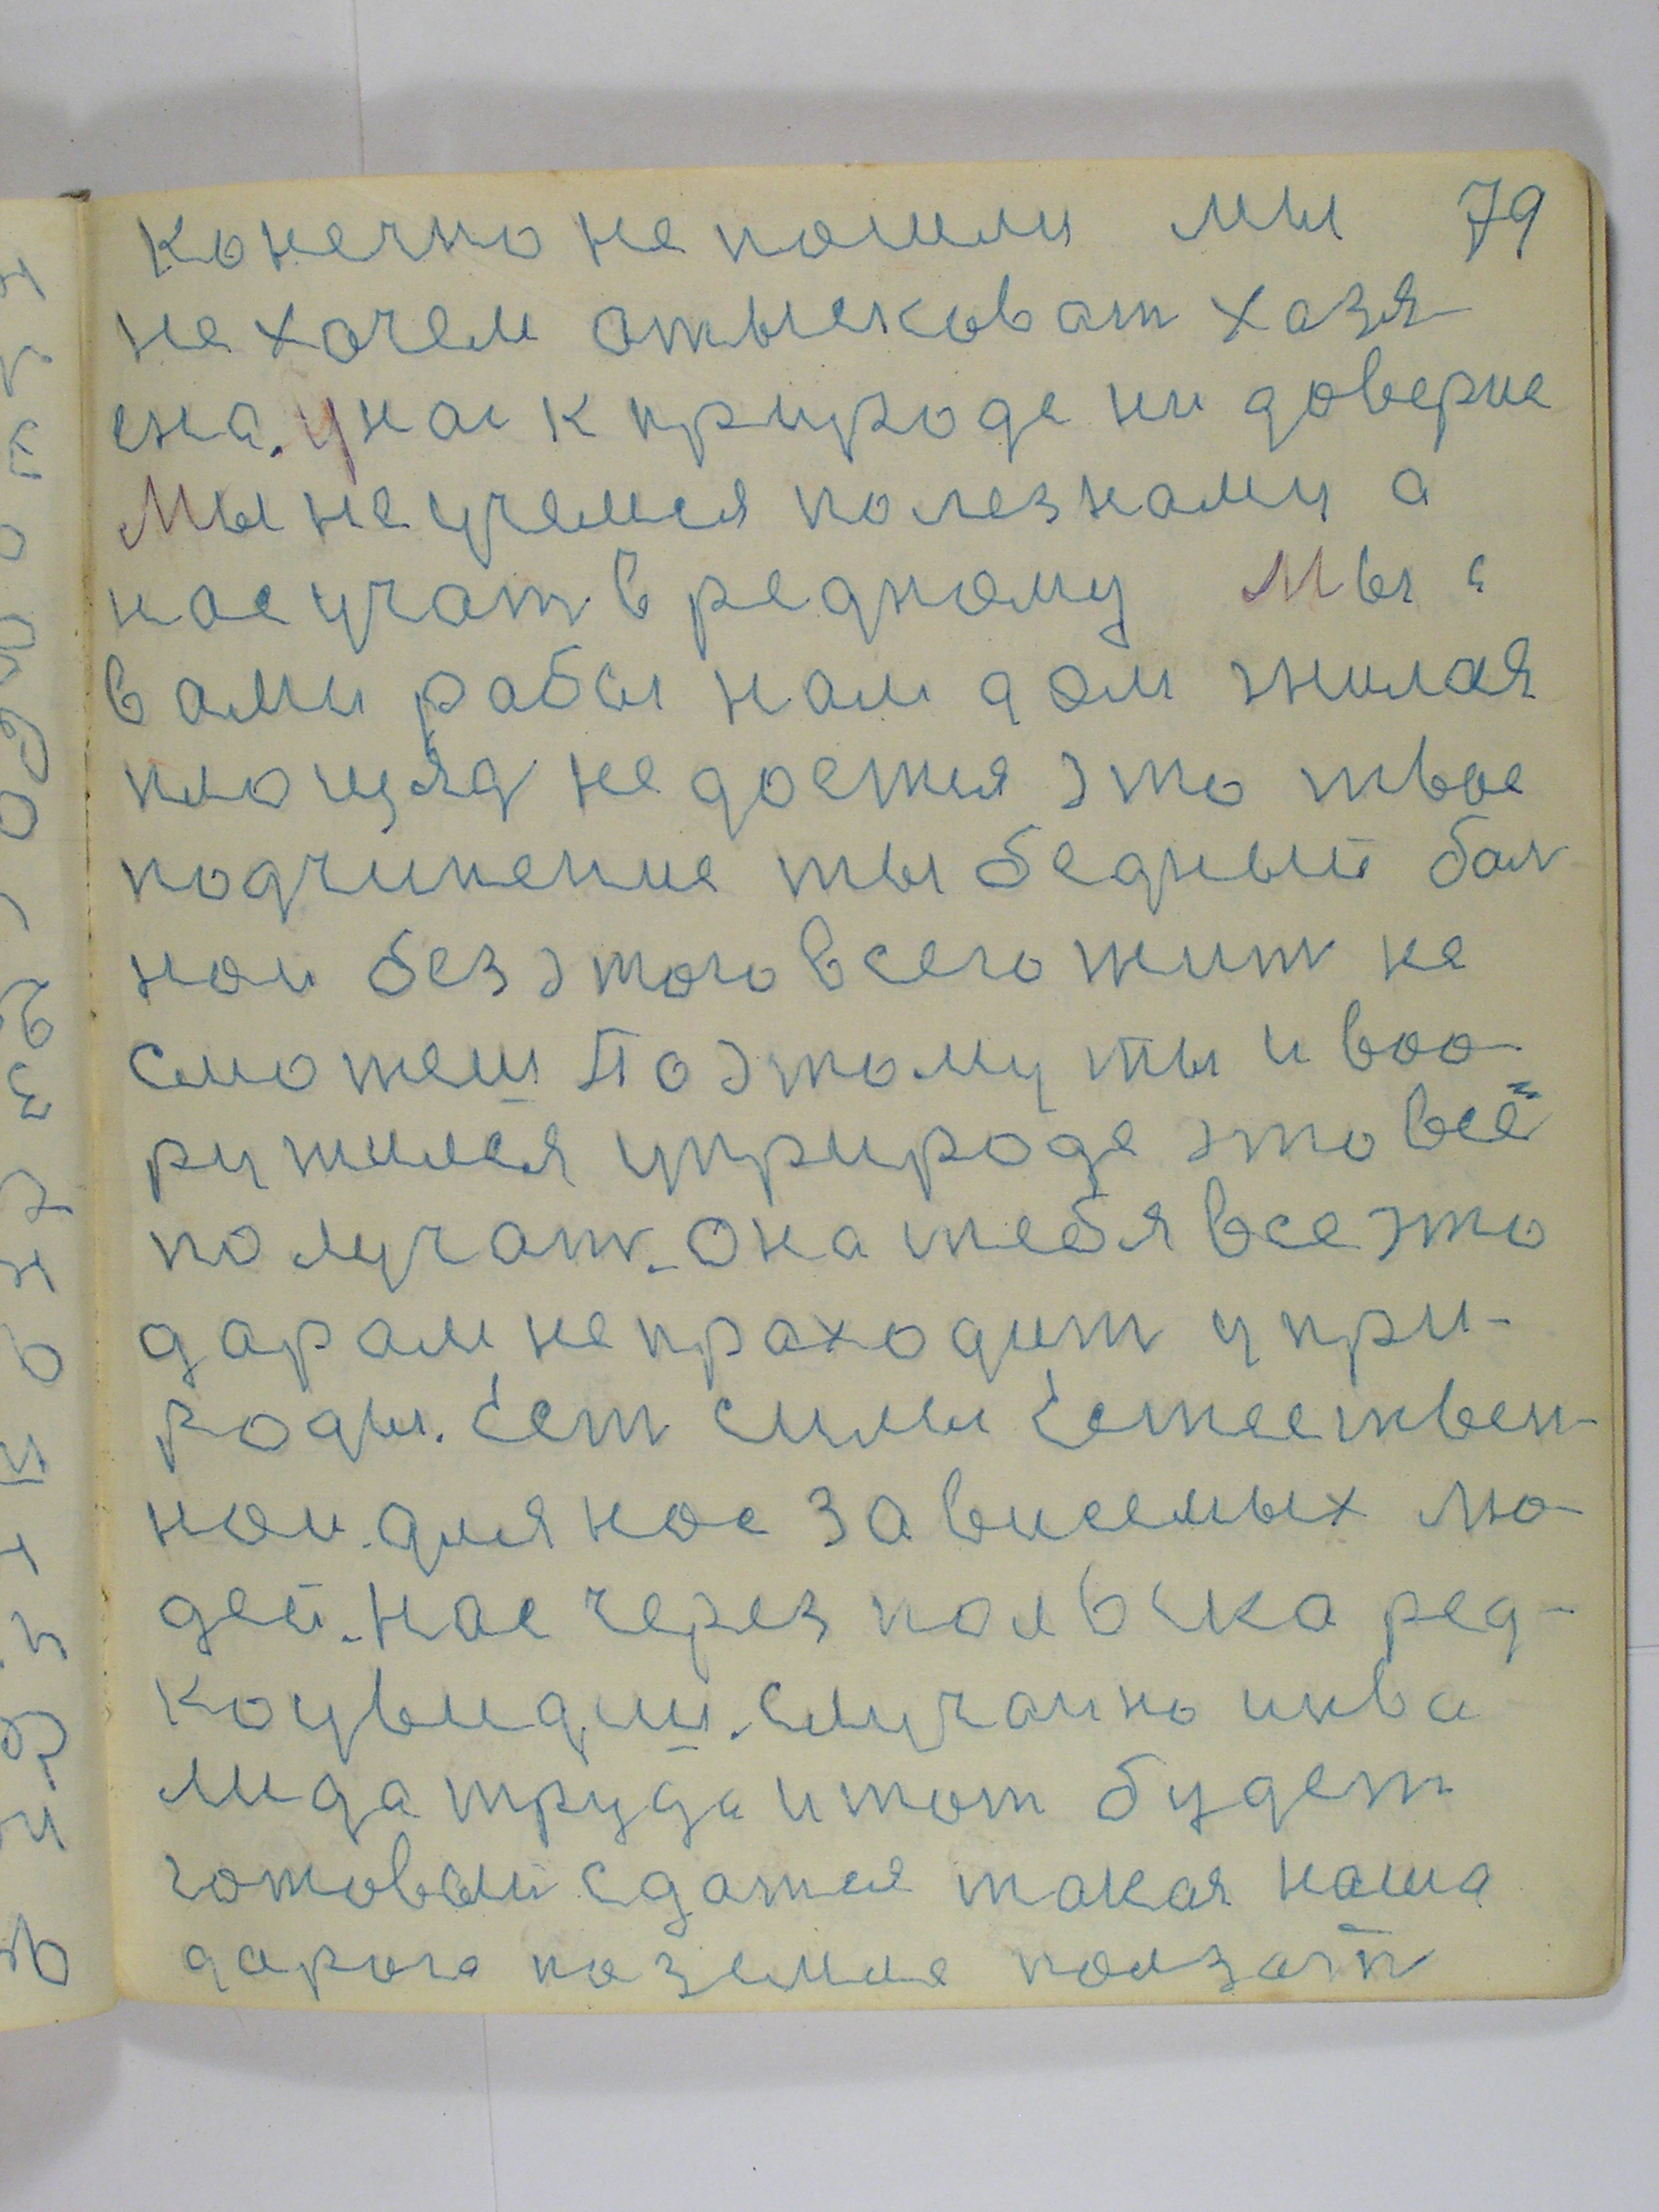 конечно не пошли мы 79
не хочем отысковат хазя-
ена. У нас к природе ни доверие
Мы не учемся полезнаму а
нас учат вредному Мы с
вами рабы нам дом жилая
площяд не достся это твое
подчинение ты бедный бол
нои без этого всего жит не
сможеш Поэтому ты и воо-
ружился у природе это всё
получат. Она тебя все это
даром не праходит у при-
роды. Ест силы Естествен-
нои. для нас зависемых лю-
дей. Нас через полвека ред-
ко увидиш. случаино инва
лида труда и тот будет
готовый сдатся такая наша
дарога по земле ползат